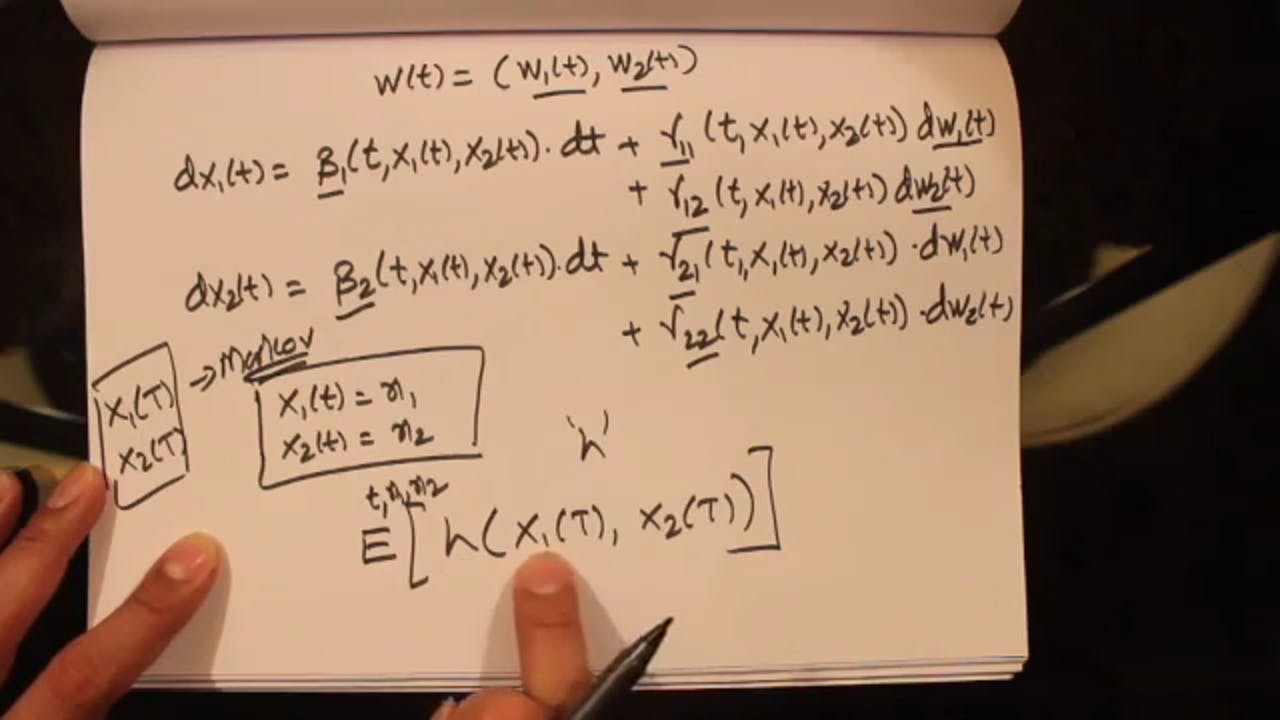 W(t) = (W₁(t), W₂(t))
dX₁(t) = β₁(t, X₁(t), X₂(t)) · dt + γ₁₁(t, X₁(t), X₂(t)) dW₁(t)
+ γ₁₂(t, X₁(t), X₂(t)) dW₂(t)
dX₂(t) = β₂(t, X₁(t), X₂(t)) · dt + γ₂₁(t, X₁(t), X₂(t)) · dW₁(t)
+ γ₂₂(t, X₁(t), X₂(t)) · dW₂(t)
X₁(T)
X₂(T)
→ Markov
X₁(t) = x₁
X₂(t) = x₂
'h'
t, x₁, x₂
E[h(X₁(T), X₂(T))]